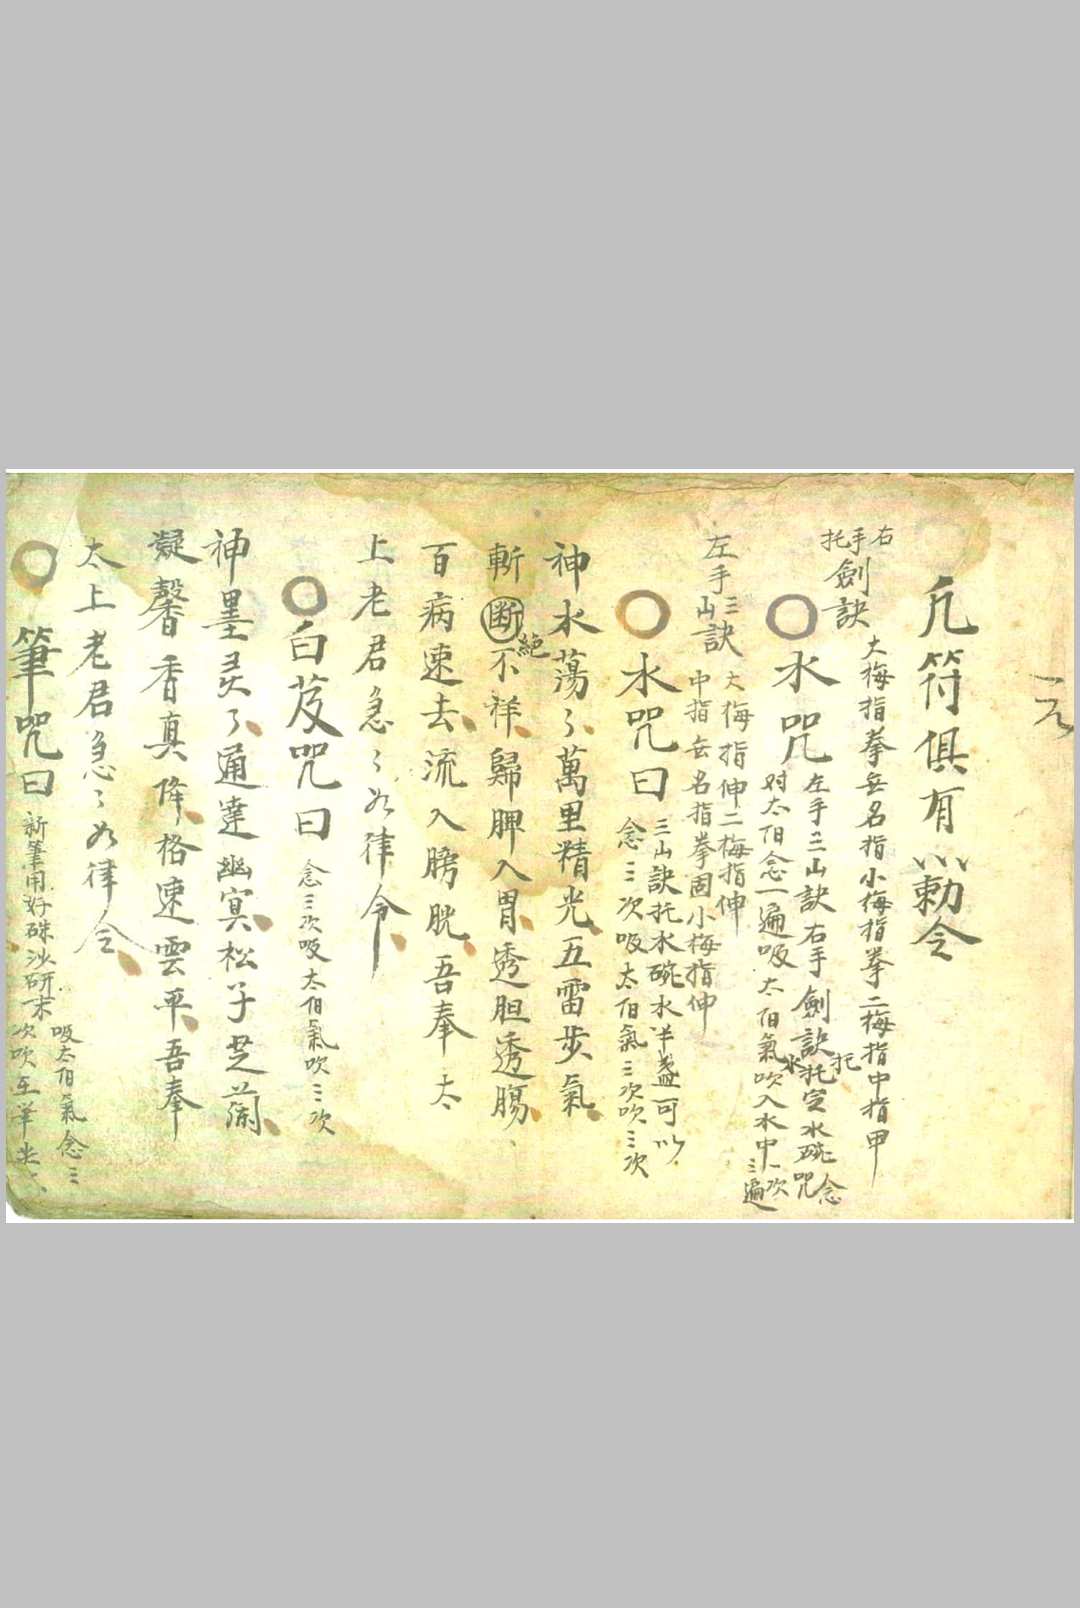 凡符俱有灬勅令
右手托
劍訣
大梅指拳無名指小梅指拳二梅指中指甲
水咒
左手三山訣右手劍訣托定水碗念咒
对太阳念一遍吸太阳氣吹入水中一次三遍
托水
左手三山訣
大侮指伸二梅指伸
中指無名指拳固小梅指伸
水咒曰
三山訣托水碗水半盞可以
念三次吸太阳氣三次吹三次
神水蕩々萬里精光五雷步氣
斬斷不祥歸脾入胃透胆透腸
絕
百病速去流入膀胱吾奉太
上老君急々如律令
白芨咒曰
念三次吸太阳氣吹三次
神墨灵々通達幽冥松子芝蘭
凝馨香真降格速雲平吾奉
太上老君急々如律令
筆咒曰
新筆用好硃沙研末
吸太阳氣念三
次吹至筆尖